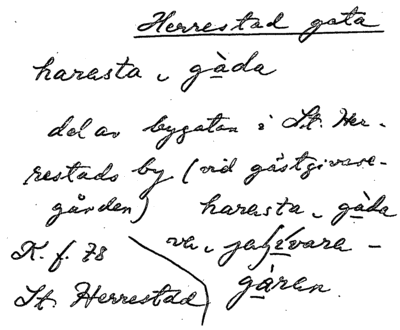 Herrestad gata
harasta, gàda
del av bygatan i St. Her-
restads by (vid gästgivare-
gården) harasta, gàda
ve, jaʃívara-
gàren.
K. f. 78
St. Herrestad